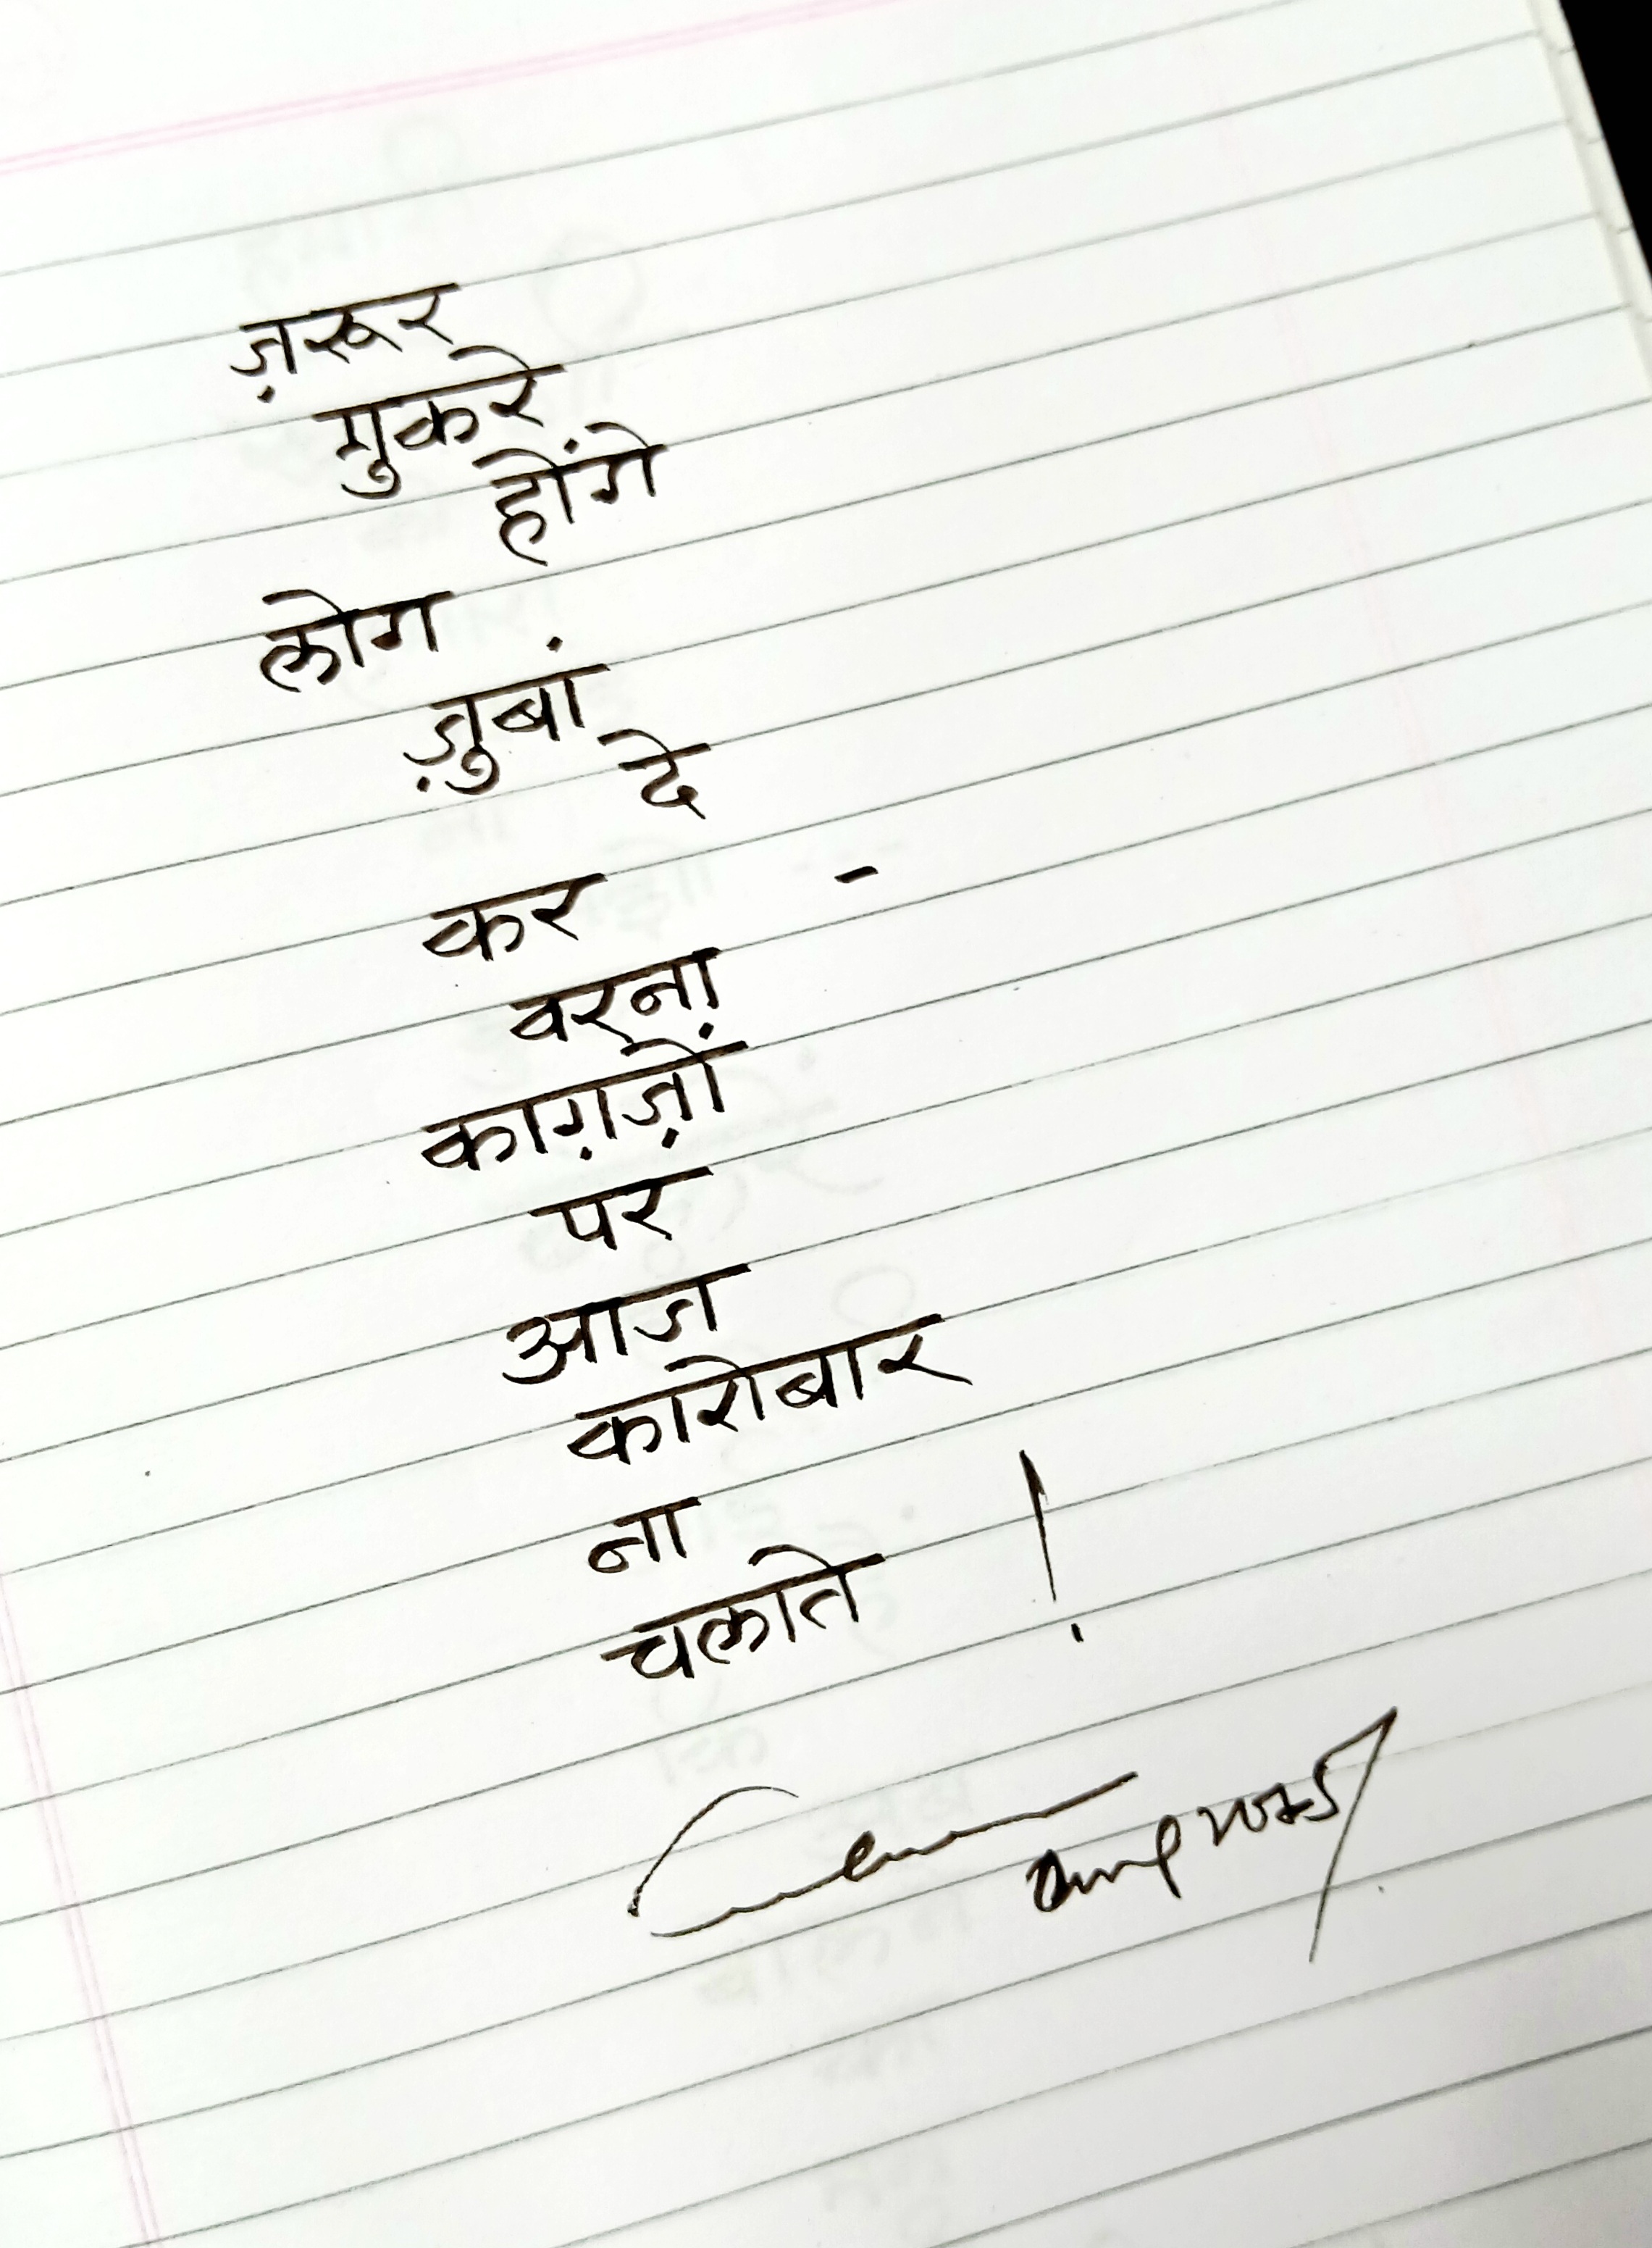 ज़रूर
मुकरे
होंगे
लोग
ज़ुबां
दे
कर -
वरना
काग़ज़ों
पर
आज
कारोबार
ना
चलाते !